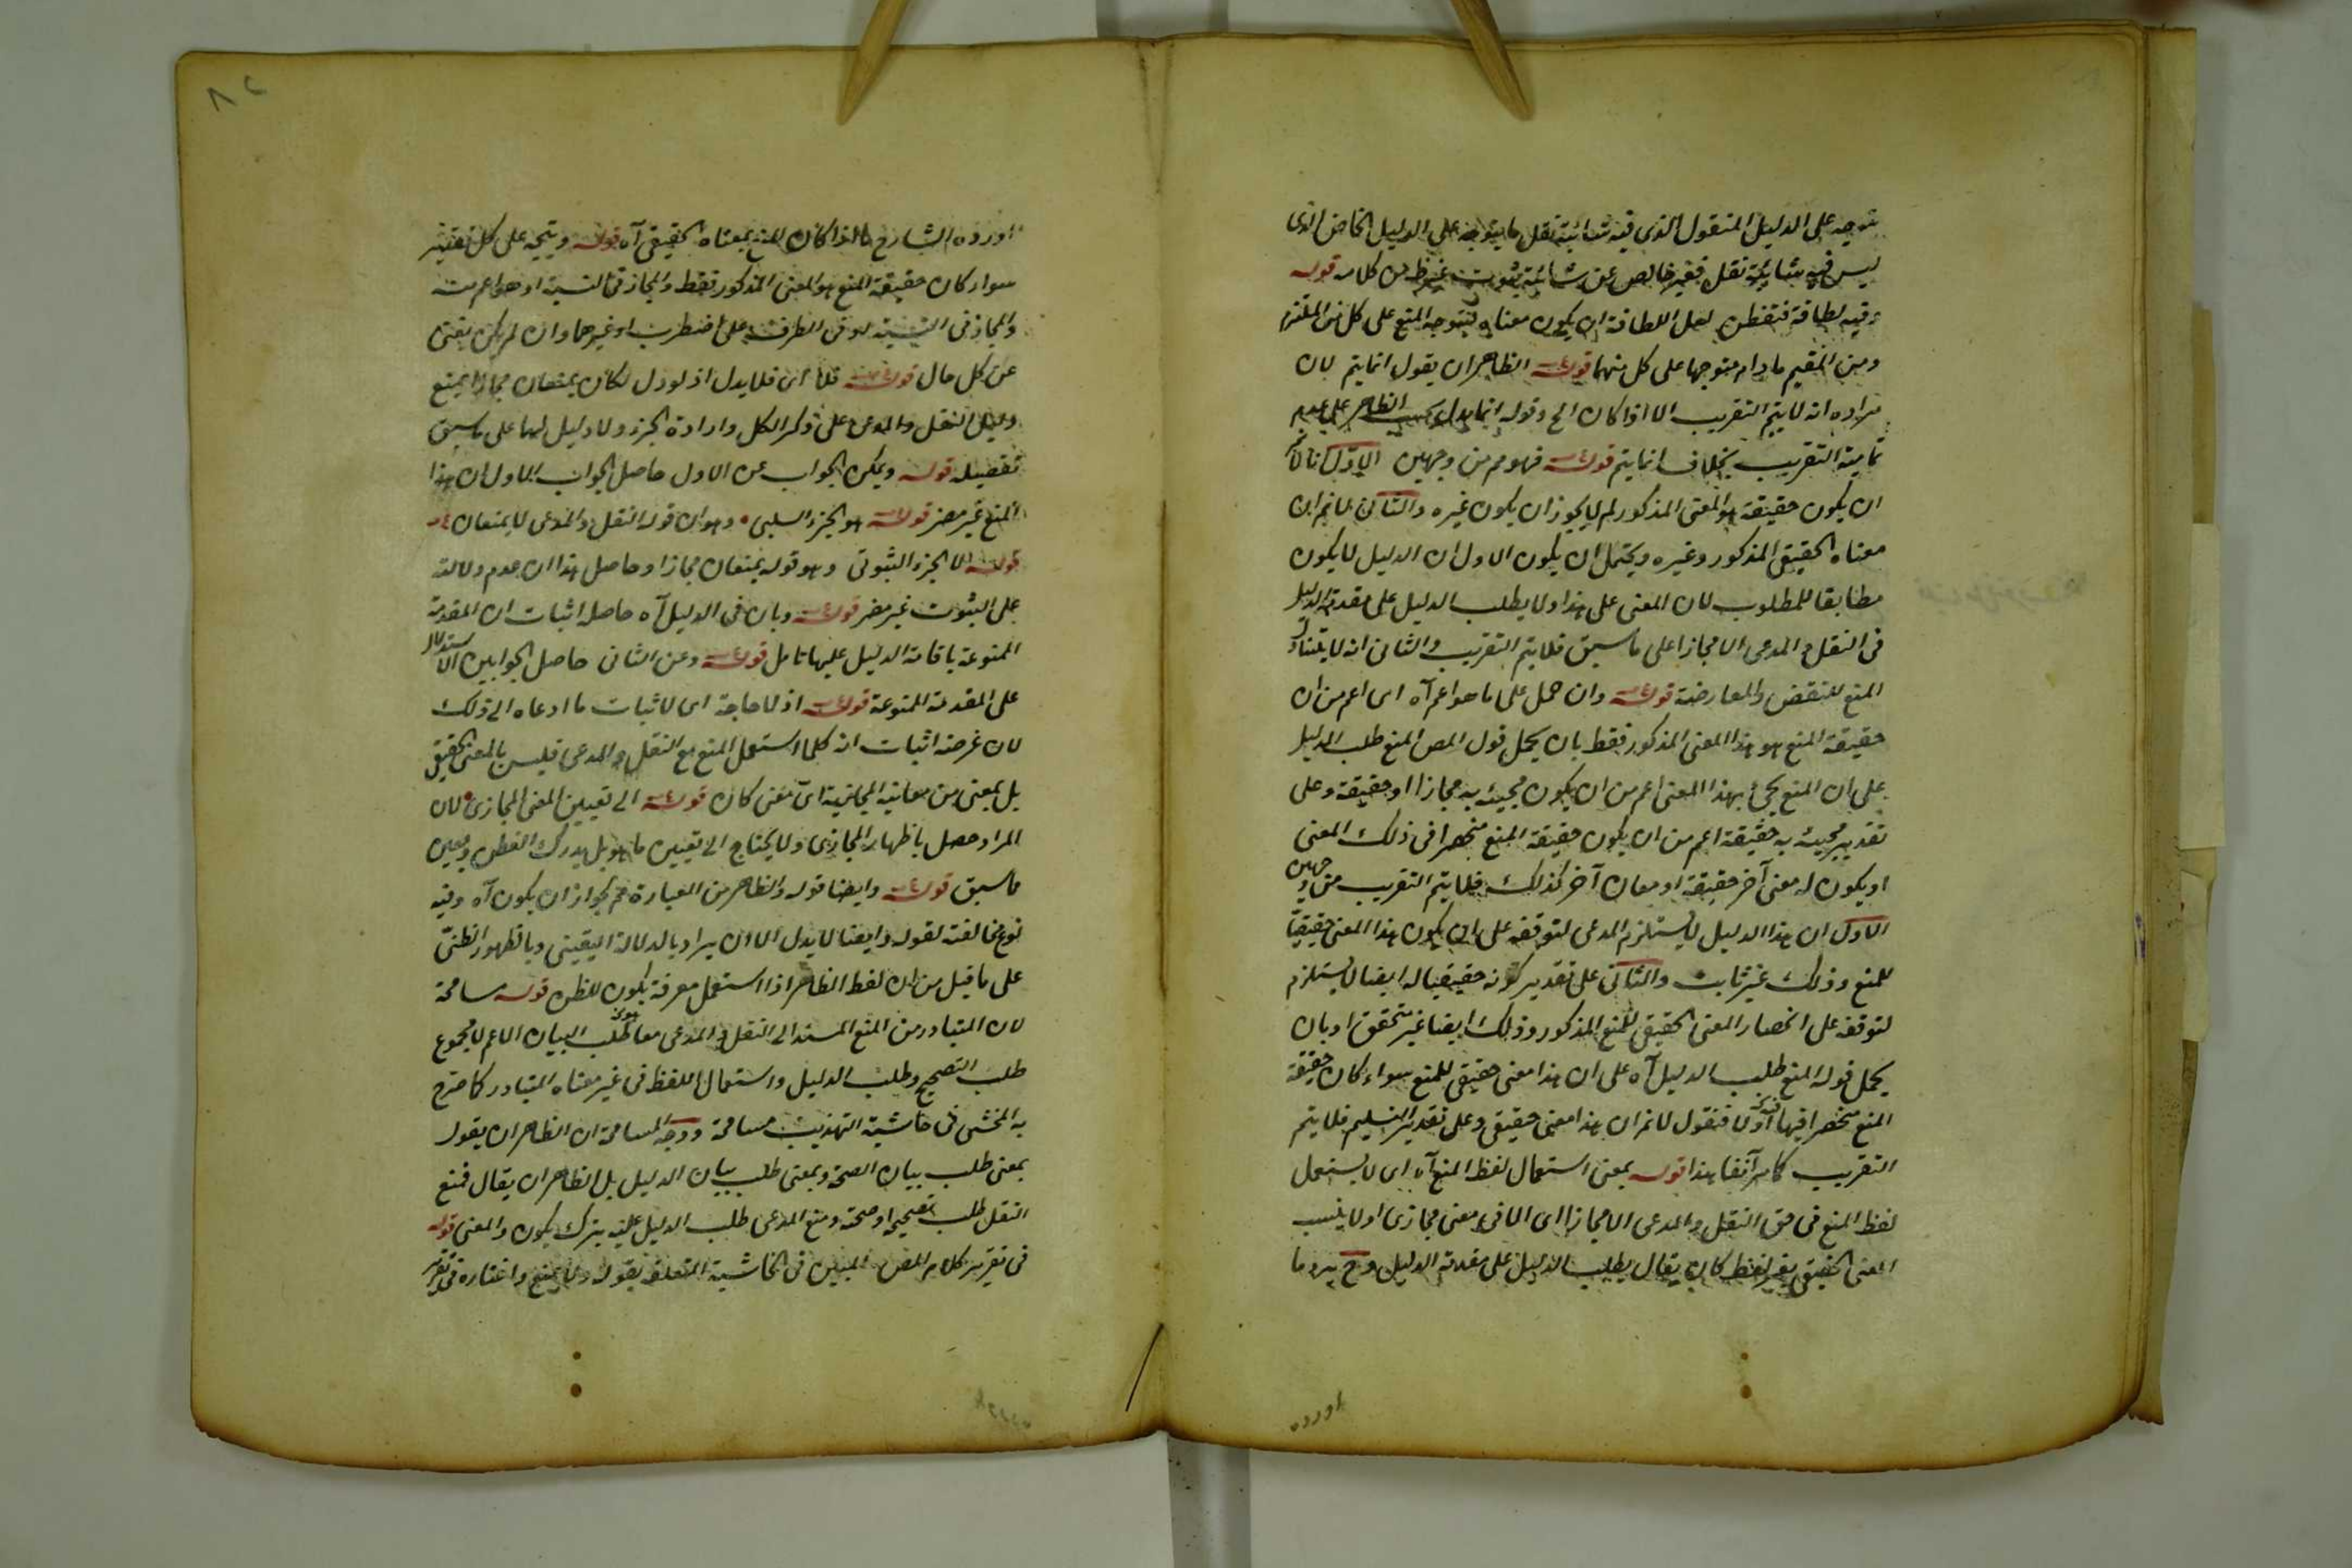 يتوجه على الدليل المنقول الذى فيه شائبة نقل ما يتوجه على الدليل الخاص الذى
ليس فيه شائبة نقل فغير خالص عن شائبة من كلامه قوله
وفيه لطافة فتفطن لعل اللطافة ان يكون معناه يتوجه المنع على كل من الملتزم
ومن المقيم ما دام متوجها على كل منهما قوله الظاهر ان يقول انما يتم لان
مراده انه لا يتم التقريب الا اذا كان الخ وقوله انما يدل بحسب الظاهر على عدم
تمامية التقريب بخلاف انما يتم قوله فهو مم من وجهين الاول انا لا نم
ان يكون حقيقة هو المعنى المذكور لم لا يجوز ان يكون غيره والثانى لا نم ان
معناه الحقيقى المذكور وغيره ويحتمل ان يكون الاول ان الدليل لا يكون
مطابقا للمطلوب لان المعنى على هذا ولا يطلب الدليل على مقدمة الدليل
فى النقل والمدعى الا مجازا على ما سبق فلا يتم التقريب والثانى انه لا يتناول
المنع للنقض والمعارضة قوله وان حمل على ما هو اعم آه اى اعم من ان
حقيقة المنع هو هذا المعنى المذكور فقط بان يحمل قول المص المنع طلب الدليل
على ان المنع يجئ بهذا المعنى اعم من ان يكون مجيئه به مجازا او حقيقة وعلى
تقدير مجيئه به حقيقة اعم من ان يكون حقيقة المنع منحصرا فى ذلك المعنى
او يكون له معنى آخر حقيقة او معان آخر كذلك فلا يتم التقريب من وجهين
الاول ان هذا الدليل لا يستلزم المدعى لتوقفه على ان يكون هذا المعنى حقيقيا
للمنع وذلك غير ثابت والثانى على تقدير كونه حقيقيا له ايضا لا يستلزم
لتوقفه على انحصار المعنى الحقيقى للمنع المذكور وذلك ايضا غير متحقق او بان
يحمل قوله المنع طلب الدليل آه على ان هذا معنى حقيقى للمنع سواء كان حقيقة
المنع منحصرا فيها اولا فنقول لا نم ان هذا معنى حقيقى وعلى تقدير التسليم فلا يتم
التقريب كما مر آنفا هذا قوله بمعنى استعمال لفظ المنع آه اى لا يستعمل
لفظ المنع فى حق النقل والمدعى الا مجازا اى الا فى معنى مجازى او لا ينسب
المعنى الحقيقى بغير لفظ كان يقال يطلب الدليل على مقدمة الدليل وح يرد ما
اورده
اورده الشارح اذا كان المنع بمعناه الحقيقى آه قوله ويتجه على كل تقدير
سواء كان حقيقة المنع هو المعنى المذكور فقط والمجاز فى النسبة او هو اعم منه
والمجاز فى النسبة او فى الطرف على اضطرب او غيرهما وان لم يكن
عن كل حال قوله قلا اى فلا يدل اذ لو دل لكان يمنعان مجازا يمنع
النقل والمدعى على ذكر الكل وارادة الجزء ولا دليل لهما على ما سبق
تفصيله قوله ويمكن الجواب عن الاول حاصل الجواب الاول ان هذا
المنع غير مضر قوله هو الجزء السلبى وهو ان قوله النقل والمدعى لا يمنعان
قوله لا الجزء الثبوتى وهو قوله يمنعان مجازا وحاصل هذا ان عدم دلالته
على الثبوت غير مضر قوله وبان فى الدليل آه حاصله اثبات ان المقدمة
الممنوعة باقامة الدليل عليها تامل قوله وعن الثانى حاصل الجوابين الاستدلال
على المقدمة الممنوعة قوله اذ لا حاجة اى لاثبات ما ادعاه الى ذلك
لان غرضه اثبات انه كلما استعمل المنع مع النقل والمدعى فليس بالمعنى الحقيقى
بل بمعنى من معانيه المجازية اى معنى كان قوله الى تعيين المعنى المجازى لان
المراد حصل باظهار المجازى ولا يحتاج الى تعيين ما هو بل يدرك الفطن
ما سبق قوله وايضا قوله والظاهر من العبارة مم لجواز ان يكون آه وفيه
نوع مخالفة لقوله وايضا لا يدل الا ان يراد بالدلالة اليقينى وبالظهور الظنى
على ما قيل من ان لفظ الظاهر اذا استعمل معرفة يكون للظن قوله مسامحة
لان المتبادر من المنع المستند الى النقل والمدعى معا هو طلب البيان الاعم لا مجموع
طلب التصحيح وطلب الدليل واستعمال اللفظ فى غير معناه المتبادر كما صرح
به المحشى فى حاشية التهذيب مسامحة ووجه المسامحة ان الظاهر ان يقول
بمعنى طلب بيان الصحة وبمعنى طلب بيان الدليل بل الظاهر ان يقال فمنع
النقل طلب تصحيحه او صحته ومنع المدعى طلب الدليل عليه بترك يكون والمعنى قوله
فى تقرير كلام المص المبين فى الحاشية المتعلقة بقوله ولا يمنع واختاره فى تقرير